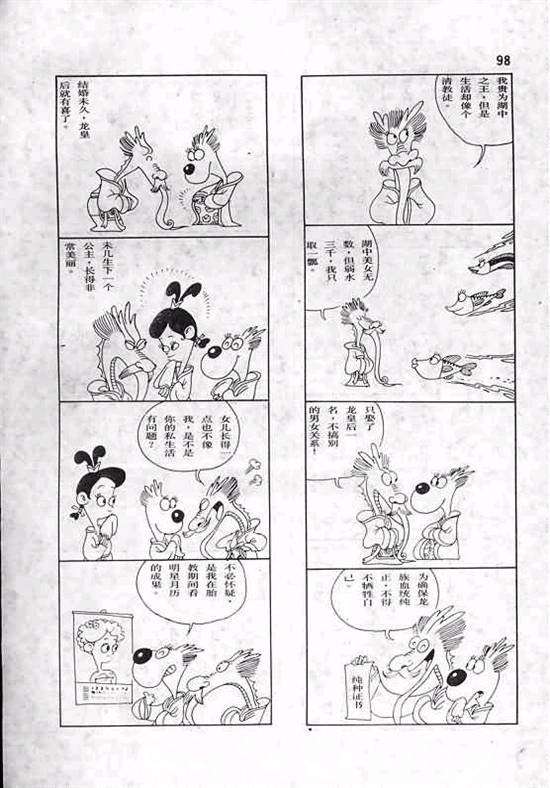 98
我贵为湖中
之王，但是
生活却像个
清教徒。
湖中美女无
数，但弱水
三千，我只
取一瓢。
只娶了
龙皇后一
名，不搞别
的男女关系！
为确保龙
族血统纯
正，不得
不牺牲自
己。
纯种证书
结婚未久，龙皇
后就有喜了。
未几生下一个
公主，长得非
常美丽。
女儿长得一
点也不像
我，是不是
你的私生活
有问题？
不必怀疑，
是我在胎
教期间看
明星月历
的成果。